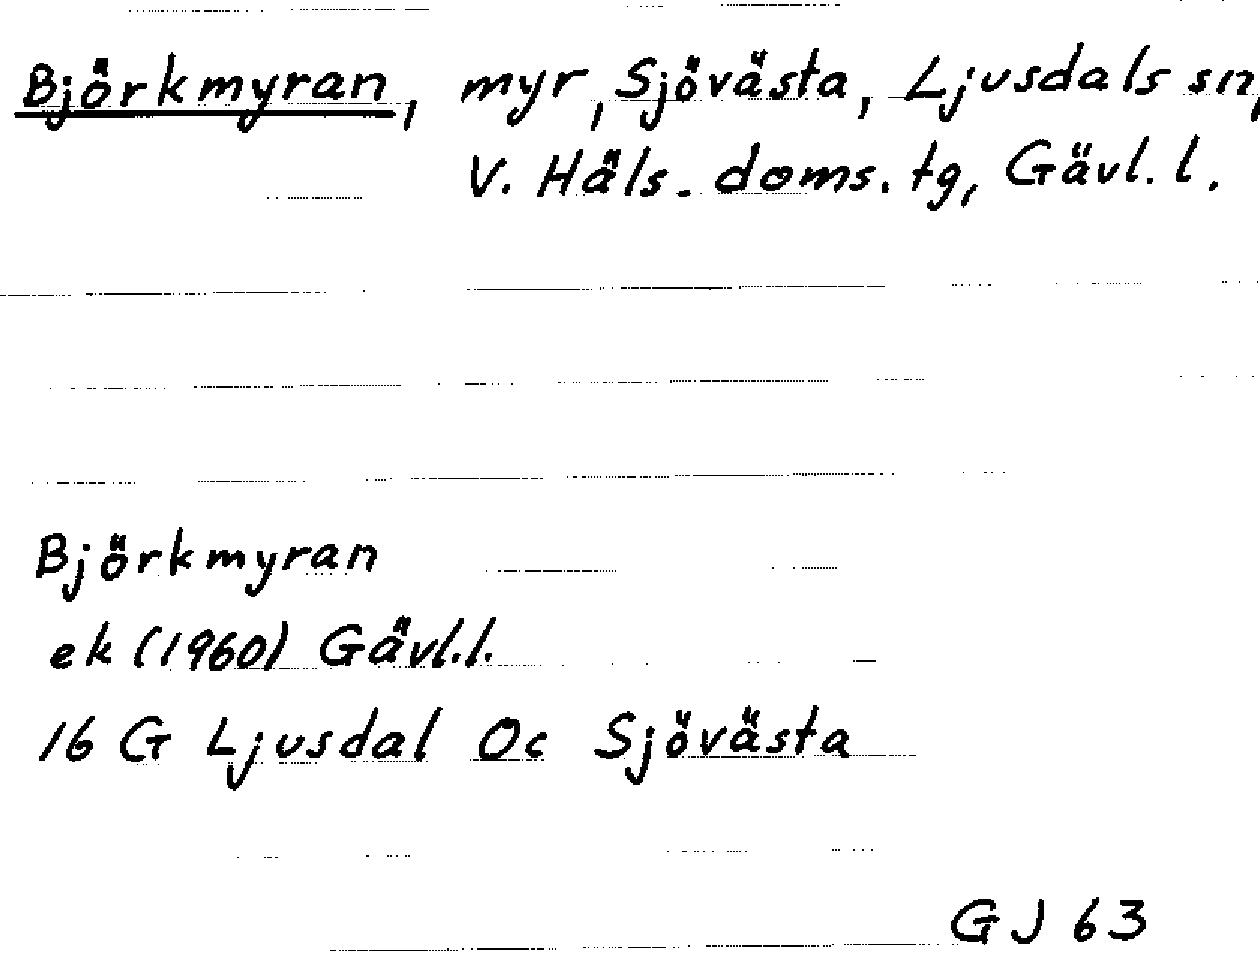 Björkmyran, myr, Sjövästa, Ljusdals sn,
V. Häls. doms. tg, Gävl. l.
Björkmyran
ek (1960) Gävl.l.
16 G Ljusdal Oc Sjövästa
GJ 63